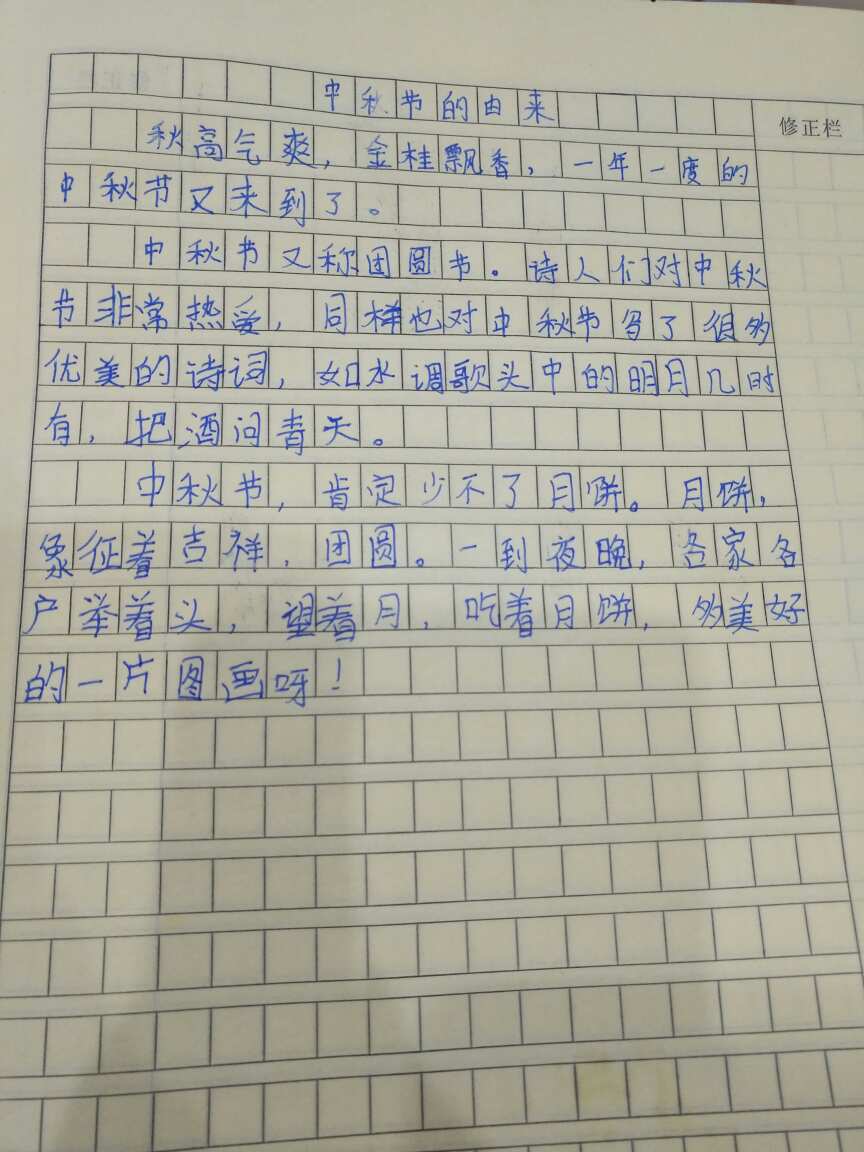 中秋节的由来
修正栏
秋高气爽，金桂飘香，一年一度的
中秋节又来到了。
中秋节又称团圆节。诗人们对中秋
节非常热爱，同样也对中秋节写了很多
优美的诗词，如水调歌头中的明月几时
有，把酒问青天。
中秋节，肯定少不了月饼。月饼，
象征着吉祥，团圆。一到夜晚，各家各
户举着头，望着月，吃着月饼，多美好
的一片图画呀！